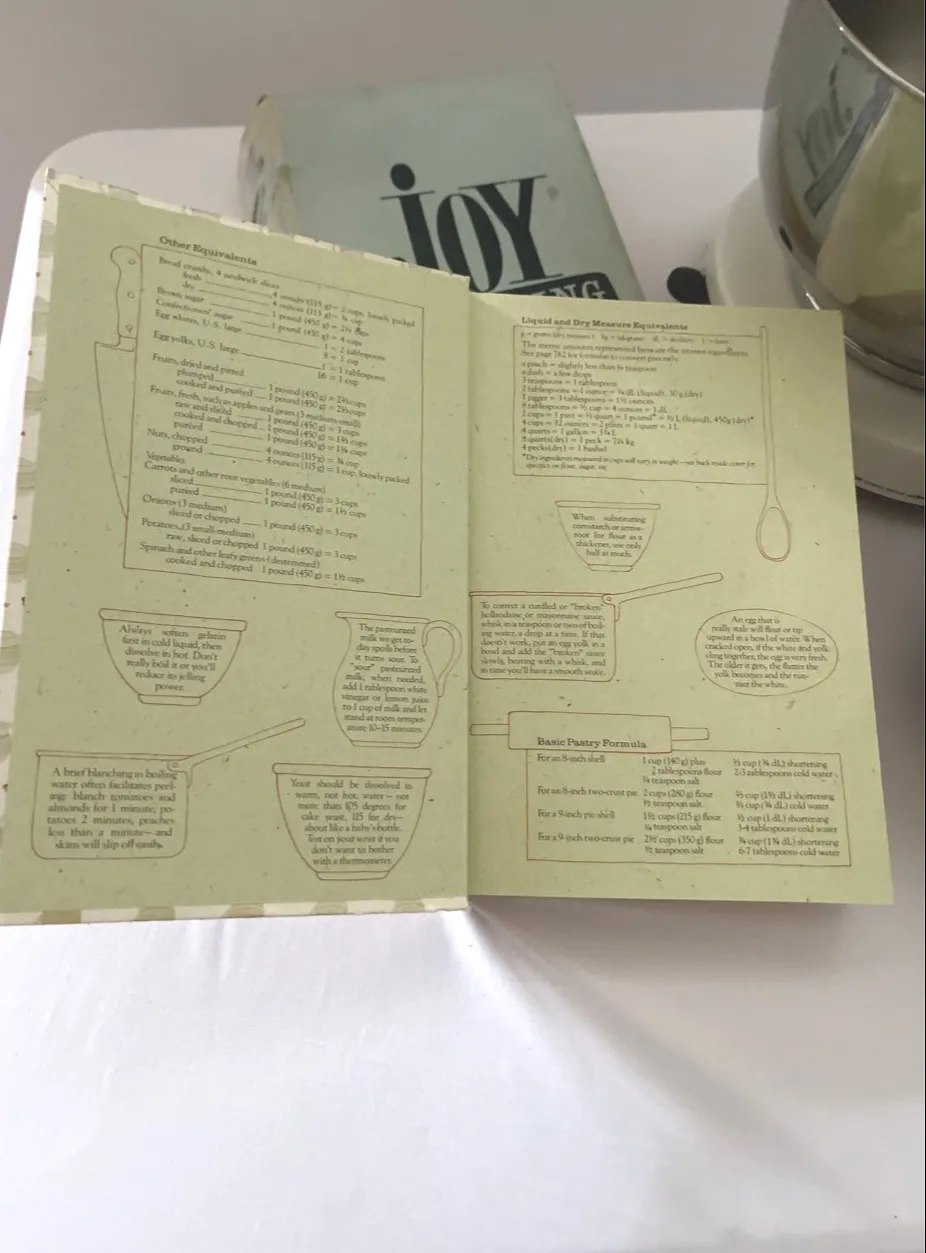 JOY
Other Equivalents
Bread crumbs, 4 sandwich slices
fresh 4 ounces (115 g) = 2 cups, loosely packed
dry 4 ounces (115 g) = ¾ cup
Brown sugar 1 pound (450 g) = 2¼ cups
Confectioners' sugar 1 pound (450 g) = 4 cups
Egg whites, U.S. large 1 = 2 tablespoons
8 = 1 cup
Egg yolks, U.S. large 1 = 1 tablespoon
16 = 1 cup
Fruits, dried and pitted
plumped 1 pound (450 g) = 2⅔ cups
cooked and puréed 1 pound (450 g) = 2⅓ cups
Fruits, fresh, such as apples and pears (3 medium-small)
raw and sliced 1 pound (450 g) = 3 cups
cooked and chopped 1 pound (450 g) = 1⅔ cups
puréed 1 pound (450 g) = 1¼ cups
Nuts, chopped 4 ounces (115 g) = ¾ cup
ground 4 ounces (115 g) = 1 cup, loosely packed
Vegetables
Carrots and other root vegetables (6 medium)
sliced 1 pound (450 g) = 3 cups
puréed 1 pound (450 g) = 1⅓ cups
Onions (3 medium)
sliced or chopped 1 pound (450 g) = 3 cups
Potatoes (3 small-medium)
raw, sliced or chopped 1 pound (450 g) = 3 cups
Spinach and other leafy greens (destemmed)
cooked and chopped 1 pound (450 g) = 1½ cups
Always soften gelatin
first in cold liquid, then
dissolve in hot. Don't
really boil it or you'll
reduce its jelling
power.
The pasteurized
milk we get to-
day spoils before
it turns sour. To
"sour" pasteurized
milk, when needed,
add 1 tablespoon white
vinegar or lemon juice
to 1 cup of milk and let
stand at room temper-
ature 10–15 minutes.
A brief blanching in boiling
water often facilitates peel-
ing: blanch tomatoes and
almonds for 1 minute, po-
tatoes 2 minutes, peaches
less than a minute— and
skins will slip off easily.
Yeast should be dissolved in
warm, not hot, water— not
more than 85 degrees for
cake yeast, 115 for dry—
about like a baby's bottle.
Test on your wrist if you
don't want to bother
with a thermometer.
Liquid and Dry Measure Equivalents
The metric amounts represented here are the nearest equivalents.
See page 762 for formulas to convert precisely.
a pinch = slightly less than ¼ teaspoon
a dash = a few drops
3 teaspoons = 1 tablespoon
2 tablespoons = 1 ounce = ¼ dL (liquid), 30 g (dry)
1 jigger = 3 tablespoons = 1½ ounces
8 tablespoons = ½ cup = 4 ounces = 1 dL
2 cups = 1 pint = ½ quart = 1 pound* = ½ L (liquid), 450g (dry)*
4 cups = 32 ounces = 2 pints = 1 quart = 1 L
4 quarts = 1 gallon = 3¾ L
8 quarts (dry) = 1 peck = 7¼ kg
4 pecks (dry) = 1 bushel
*Dry ingredients measured in cups will vary in weight—see back inside cover for
specifics on flour, sugar, etc.
When substituting
cornstarch or arrow-
root for flour as a
thickener, use only
half as much.
To correct a curdled or "broken"
hollandaise or mayonnaise sauce,
whisk in a teaspoon or two of boil-
ing water, a drop at a time. If that
doesn't work, put an egg yolk in a
bowl and add the "broken" sauce
slowly, beating with a whisk, and
in time you'll have a smooth sauce.
An egg that is
really stale will float or tip
upward in a bowl of water. When
cracked open, if the white and yolk
cling together, the egg is very fresh.
The older it gets, the flatter the
yolk becomes and the run-
nier the white.
Basic Pastry Formula
For an 8-inch shell 1 cup (140 g) plus ⅓ cup (¾ dL) shortening
2 tablespoons flour 2-3 tablespoons cold water
¼ teaspoon salt
For an 8-inch two-crust pie 2 cups (280 g) flour ⅔ cup (1½ dL) shortening
½ teaspoon salt ⅓ cup (¾ dL) cold water
For a 9-inch pie shell 1½ cups (215 g) flour ½ cup (1 dL) shortening
¼ teaspoon salt 3-4 tablespoons cold water
For a 9-inch two-crust pie 2½ cups (350 g) flour ¾ cup (1¾ dL) shortening
½ teaspoon salt 6-7 tablespoons cold water